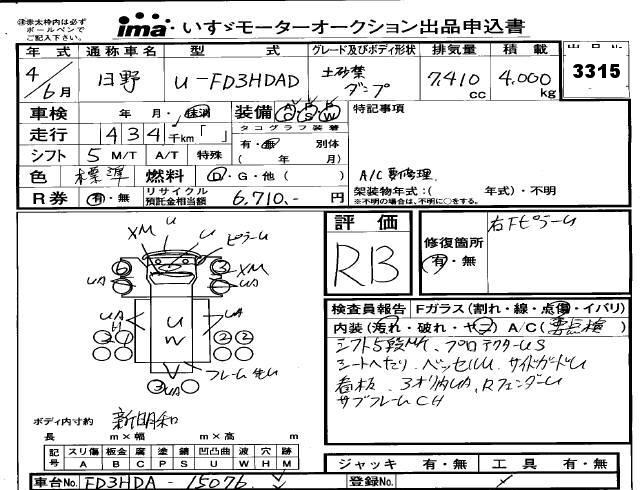 ※赤太枠内は必ず
ボールペンで
ご記入下さい。
ima・いすゞモーターオークション出品申込書
年式 通称車名 型式 グレード及びボディ形状 排気量 積載 出品No
4/6月 日野 U-FD3HDAD 土砂禁ダンプ 7,410cc 4,000kg 3315
車検 年 月・抹消 装備 A/C P/S P/W 特記事項
走行 434千km「 」 タコグラフ装着
有・無 別体
シフト 5 M/T A/T 特殊 ( 年 月) A/C要修理.
色 標準 燃料 D・G・他( ) 架装物年式:( 年式)・不明
※不明の場合は、不明に○をする。
R券 有・無 リサイクル預託金相当額 6,710.- 円
評価 RB
修復箇所 有・無
右FピラーU
U
XM U ピラーU
6 3 XM
UA UA
UA UA
U
W
2 2
フレーム
3 UA
検査員報告 Fガラス(割れ・線・点傷・イバリ)
内装(汚れ・破れ・ヤニ) A/C(要点検)
シフト5段M/T、プロテクターUS
シートヘたり、ベッセルU、サイドガードU
看板、3オリ内UA、RフェンダーU
サブフレームCH
ボディ内寸約 新明和
長 m×幅 m×高 m
記号 スリ傷 板金 腐 塗 錆 凹凸曲 波 穴 跡
A B C P S U W H M
ジャッキ 有・無 工具 有・無
車台No. FD3HDA - 15076 登録No.